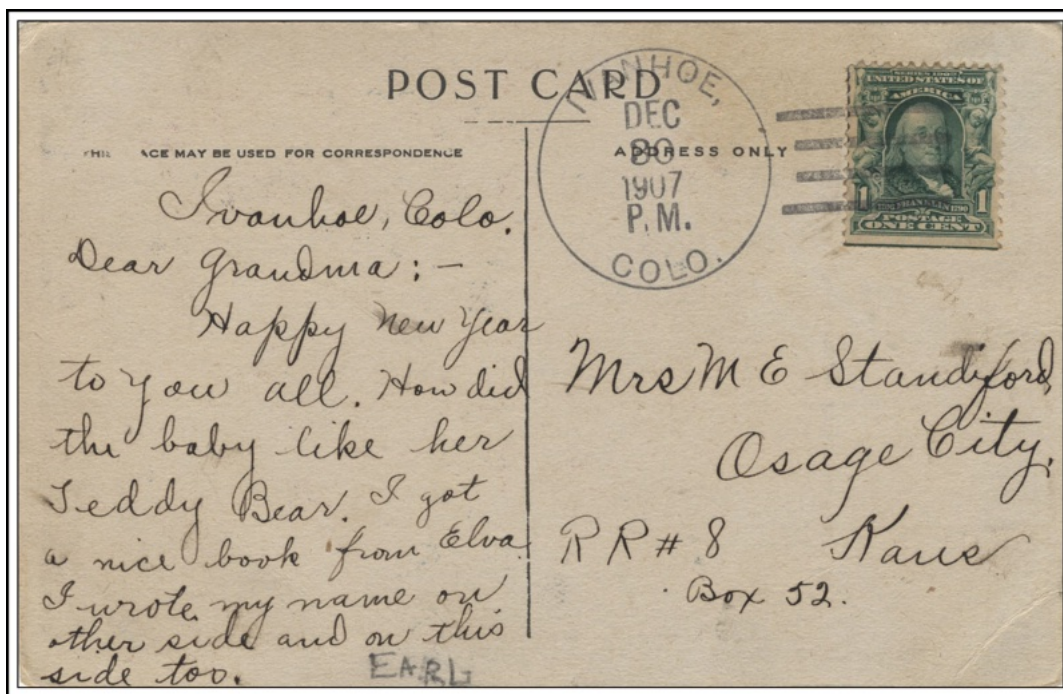 POST CARD
ACE MAY BE USED FOR CORRESPONDENCE
ADDRESS ONLY
IVANHOE,
DEC
30
1907
P.M.
COLO.
SERIES 1902
UNITED STATES OF
AMERICA
1 FRANKLIN 1
POSTAGE
ONE CENT
Ivanhoe, Colo.
Dear Grandma: —
Happy New Year
to you all. How did
the baby like her
Teddy Bear. I got
a nice book from Elva.
I wrote my name on
other side and on this
side too.
EARL
Mrs M E Standiford,
Osage City,
RR # 8 Kans
Box 52.